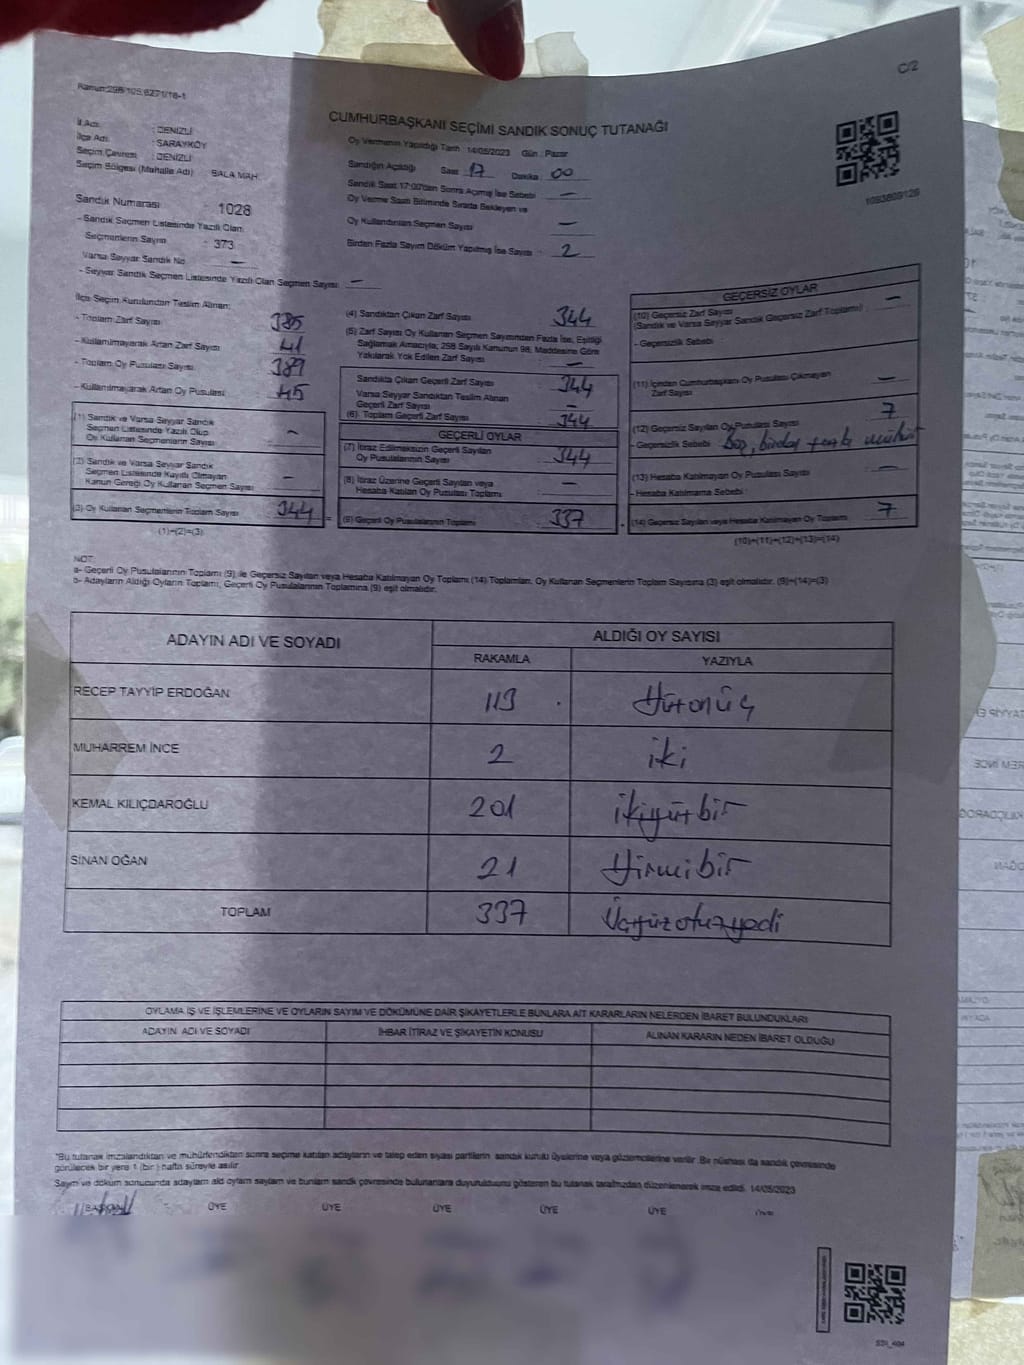 Kanun:298/105,6271/16-1
C/2
CUMHURBAŞKANI SEÇİMİ SANDIK SONUÇ TUTANAĞI
İl Adı : DENİZLİ
İlçe Adı : SARAYKÖY
Seçim Çevresi : DENİZLİ
Seçim Bölgesi (Mahalle Adı) BALA MAH.
Sandık Numarası : 1028
- Sandık Seçmen Listesinde Yazılı Olan
Seçmenlerin Sayısı : 373
Varsa Seyyar Sandık No –
- Seyyar Sandık Seçmen Listesinde Yazılı Olan Seçmen Sayısı: –
Oy Vermenin Yapıldığı Tarih : 14/05/2023 Gün : Pazar
Sandığın Açıldığı Saat 17 Dakika 00
Sandık Saat 17:00'den Sonra Açılmış İse Sebebi –
Oy Verme Saati Bitiminde Sırada Bekleyen ve
Oy Kullandırılan Seçmen Sayısı –
Birden Fazla Sayım Döküm Yapılmış İse Sayısı : 2
1093809129
İlçe Seçim Kurulundan Teslim Alınan:
- Toplam Zarf Sayısı 385
- Kullanılmayarak Artan Zarf Sayısı 41
- Toplam Oy Pusulası Sayısı 389
- Kullanılmayarak Artan Oy Pusulası 45
(1) Sandık ve Varsa Seyyar Sandık
Seçmen Listesinde Yazılı Olup
Oy Kullanan Seçmenlerin Sayısı : –
(2) Sandık ve Varsa Seyyar Sandık
Seçmen Listesinde Kayıtlı Olmayan
Kanun Gereği Oy Kullanan Seçmen Sayısı –
(3) Oy Kullanan Seçmenlerin Toplam Sayısı 344
(1)+(2)=(3)
(4) Sandıktan Çıkan Zarf Sayısı 344
(5) Zarf Sayısı Oy Kullanan Seçmen Sayısından Fazla İse, Eşitliği
Sağlamak Amacıyla; 298 Sayılı Kanunun 98. Maddesine Göre
Yakılarak Yok Edilen Zarf Sayısı –
Sandıkta Çıkan Geçerli Zarf Sayısı 344
Varsa Seyyar Sandıktan Teslim Alınan
Geçerli Zarf Sayısı –
(6) Toplam Geçerli Zarf Sayısı 344
GEÇERLİ OYLAR
(7) İtiraz Edilmeksizin Geçerli Sayılan
Oy Pusulalarının Sayısı : 344
(8) İtiraz Üzerine Geçerli Sayılan veya
Hesaba Katılan Oy Pusulası Toplamı –
(9) Geçerli Oy Pusulalarının Toplamı : 337
GEÇERSİZ OYLAR
(10) Geçersiz Zarf Sayısı
(Sandık ve Varsa Seyyar Sandık Geçersiz Zarf Toplamı) : –
- Geçersizlik Sebebi :
(11) İçinden Cumhurbaşkanı Oy Pusulası Çıkmayan
Zarf Sayısı –
(12) Geçersiz Sayılan Oy Pusulası Sayısı 7
- Geçersizlik Sebebi : Boş, birden fazla mühür
(13) Hesaba Katılmayan Oy Pusulası Sayısı –
- Hesaba Katılmama Sebebi :
(14) Geçersiz Sayılan veya Hesaba Katılmayan Oy Toplamı 7
(10)+(11)+(12)+(13)=(14)
NOT:
a- Geçerli Oy Pusulalarının Toplamı (9) ile Geçersiz Sayılan veya Hesaba Katılmayan Oy Toplamı (14) Toplamları, Oy Kullanan Seçmenlerin Toplam Sayısına (3) eşit olmalıdır. (9)+(14)=(3)
b- Adayların Aldığı Oyların Toplamı, Geçerli Oy Pusulalarının Toplamına (9) eşit olmalıdır.
ADAYIN ADI VE SOYADI ALDIĞI OY SAYISI
RAKAMLA YAZIYLA
RECEP TAYYİP ERDOĞAN 113 Yüzonüç
MUHARREM İNCE 2 iki
KEMAL KILIÇDAROĞLU 201 ikiyüzbir
SİNAN OĞAN 21 Yirmibir
TOPLAM 337 Üçyüzotuzyedi
OYLAMA İŞ VE İŞLEMLERİNE VE OYLARIN SAYIM VE DÖKÜMÜNE DAİR ŞİKAYETLERLE BUNLARA AİT KARARLARIN NELERDEN İBARET BULUNDUKLARI
ADAYIN ADI VE SOYADI İHBAR İTİRAZ VE ŞİKAYETİN KONUSU ALINAN KARARIN NEDEN İBARET OLDUĞU
*Bu tutanak imzalandıktan ve mühürlendikten sonra seçime katılan adayların ve talep eden siyasi partilerin sandık kurulu üyelerine veya gözlemcilerine verilir. Bir nüshası da sandık çevresinde
görülecek bir yere 1 (bir) hafta süreyle asılır.
Sayım ve döküm sonucunda adayların aldığı oyların sayıları ve bunların sandık çevresinde bulunanlara duyurulduğunu gösteren bu tutanak tarafımızdan düzenlenerek imza edildi. 14/05/2023
BAŞKAN ÜYE ÜYE ÜYE ÜYE ÜYE ÜYE